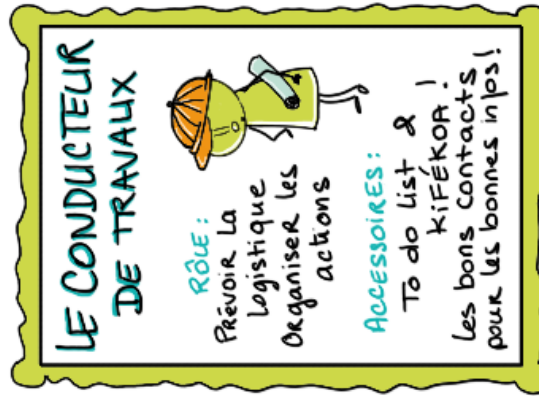 LE CONDUCTEUR
DE TRAVAUX
RÔLE :
PRÉVOIR LA
logistique
ORGANISER les
actions
ACCESSOIRES :
To do list &
KiFÉKOA !
les bons contacts
pour les bonnes infos !